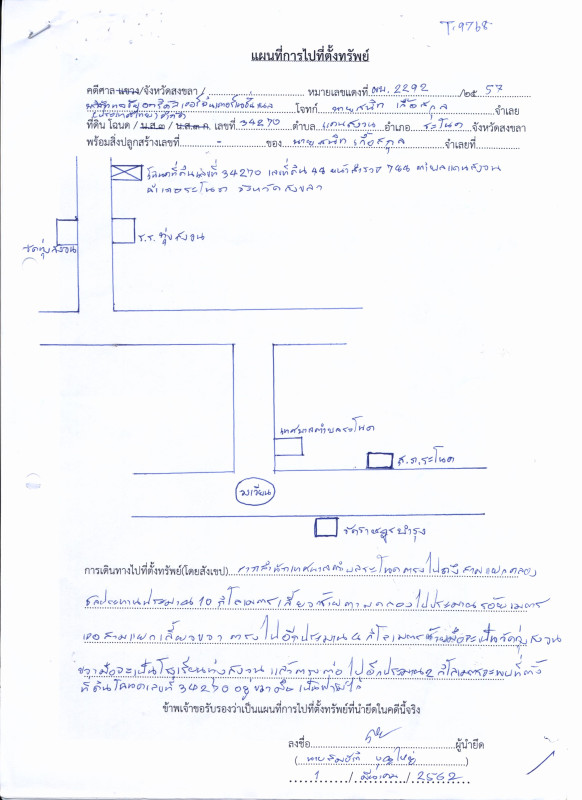 T.9768
แผนที่การไปที่ตั้งทรัพย์
คดีศาล แขวง/จังหวัดสงขลา / หมายเลขแดงที่ ผบ. 2292 /๒๕ 57
โจทก์ จำเลย
(ประเทศไทย) จำกัด
ที่ดิน โฉนด / น.ส.๓ / น.ส.๓ ก. เลขที่ 34270 ตำบล แดนสงวน อำเภอ ระโนด จังหวัดสงขลา
พร้อมสิ่งปลูกสร้างเลขที่ - ของ จำเลยที่
โฉนดที่ดินเลขที่ 34270 เลขที่ดิน 44 หน้าสำรวจ 744 ตำบลแดนสงวน
อำเภอระโนด จังหวัดสงขลา
วัดทุ่งสงวน
ร.ร. ทุ่งสงวน
เทศบาลตำบลระโนด
ส.ภ.ระโนด
วงเวียน
วัดราษฎร์บำรุง
การเดินทางไปที่ตั้งทรัพย์(โดยสังเขป) จากสำนักเทศบาลตำบลระโนดตรงไปถึงสามแยกคลอง
ชลประทานประมาณ 10 กิโลเมตรเลี้ยวซ้ายตามคลองไปประมาณร้อยเมตร
เจอสามแยกเลี้ยวขวา ตรงไปอีกประมาณ 4 กิโลเมตรซ้ายมือจะเป็นวัดทุ่งสงวน
ขวามือจะเป็นโรงเรียนทุ่งสงวน แล้วตรงต่อไปอีกประมาณ 2 กิโลเมตรจะพบที่ตั้ง
ที่ดินโฉนดเลขที่ 34270 อยู่ขวามือ
ข้าพเจ้าขอรับรองว่าเป็นแผนที่การไปที่ตั้งทรัพย์ที่นำยึดในคดีนี้จริง
ลงชื่อ ผู้นำยึด
1 / มีนาคม / 2562